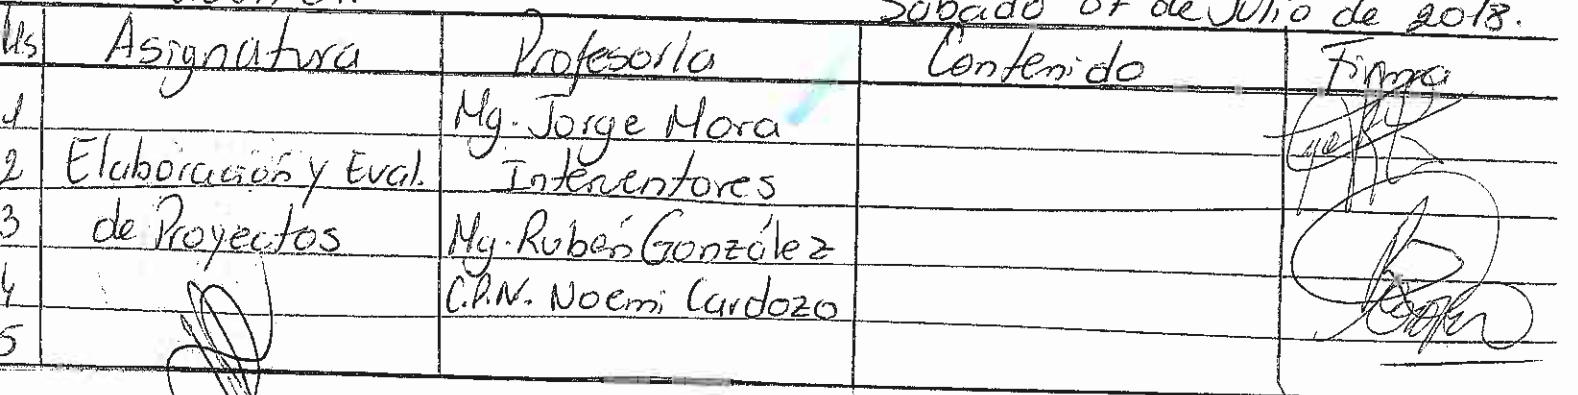 Sábado 07 de Julio de 2018.
Hs Asignatura Profesor/a Contenido Firma
1 Mg. Jorge Mora
2 Elaboración y Eval. Interventores
3 de Proyectos Mg. Rubén González
4 C.P.N. Noemi Cardozo
5